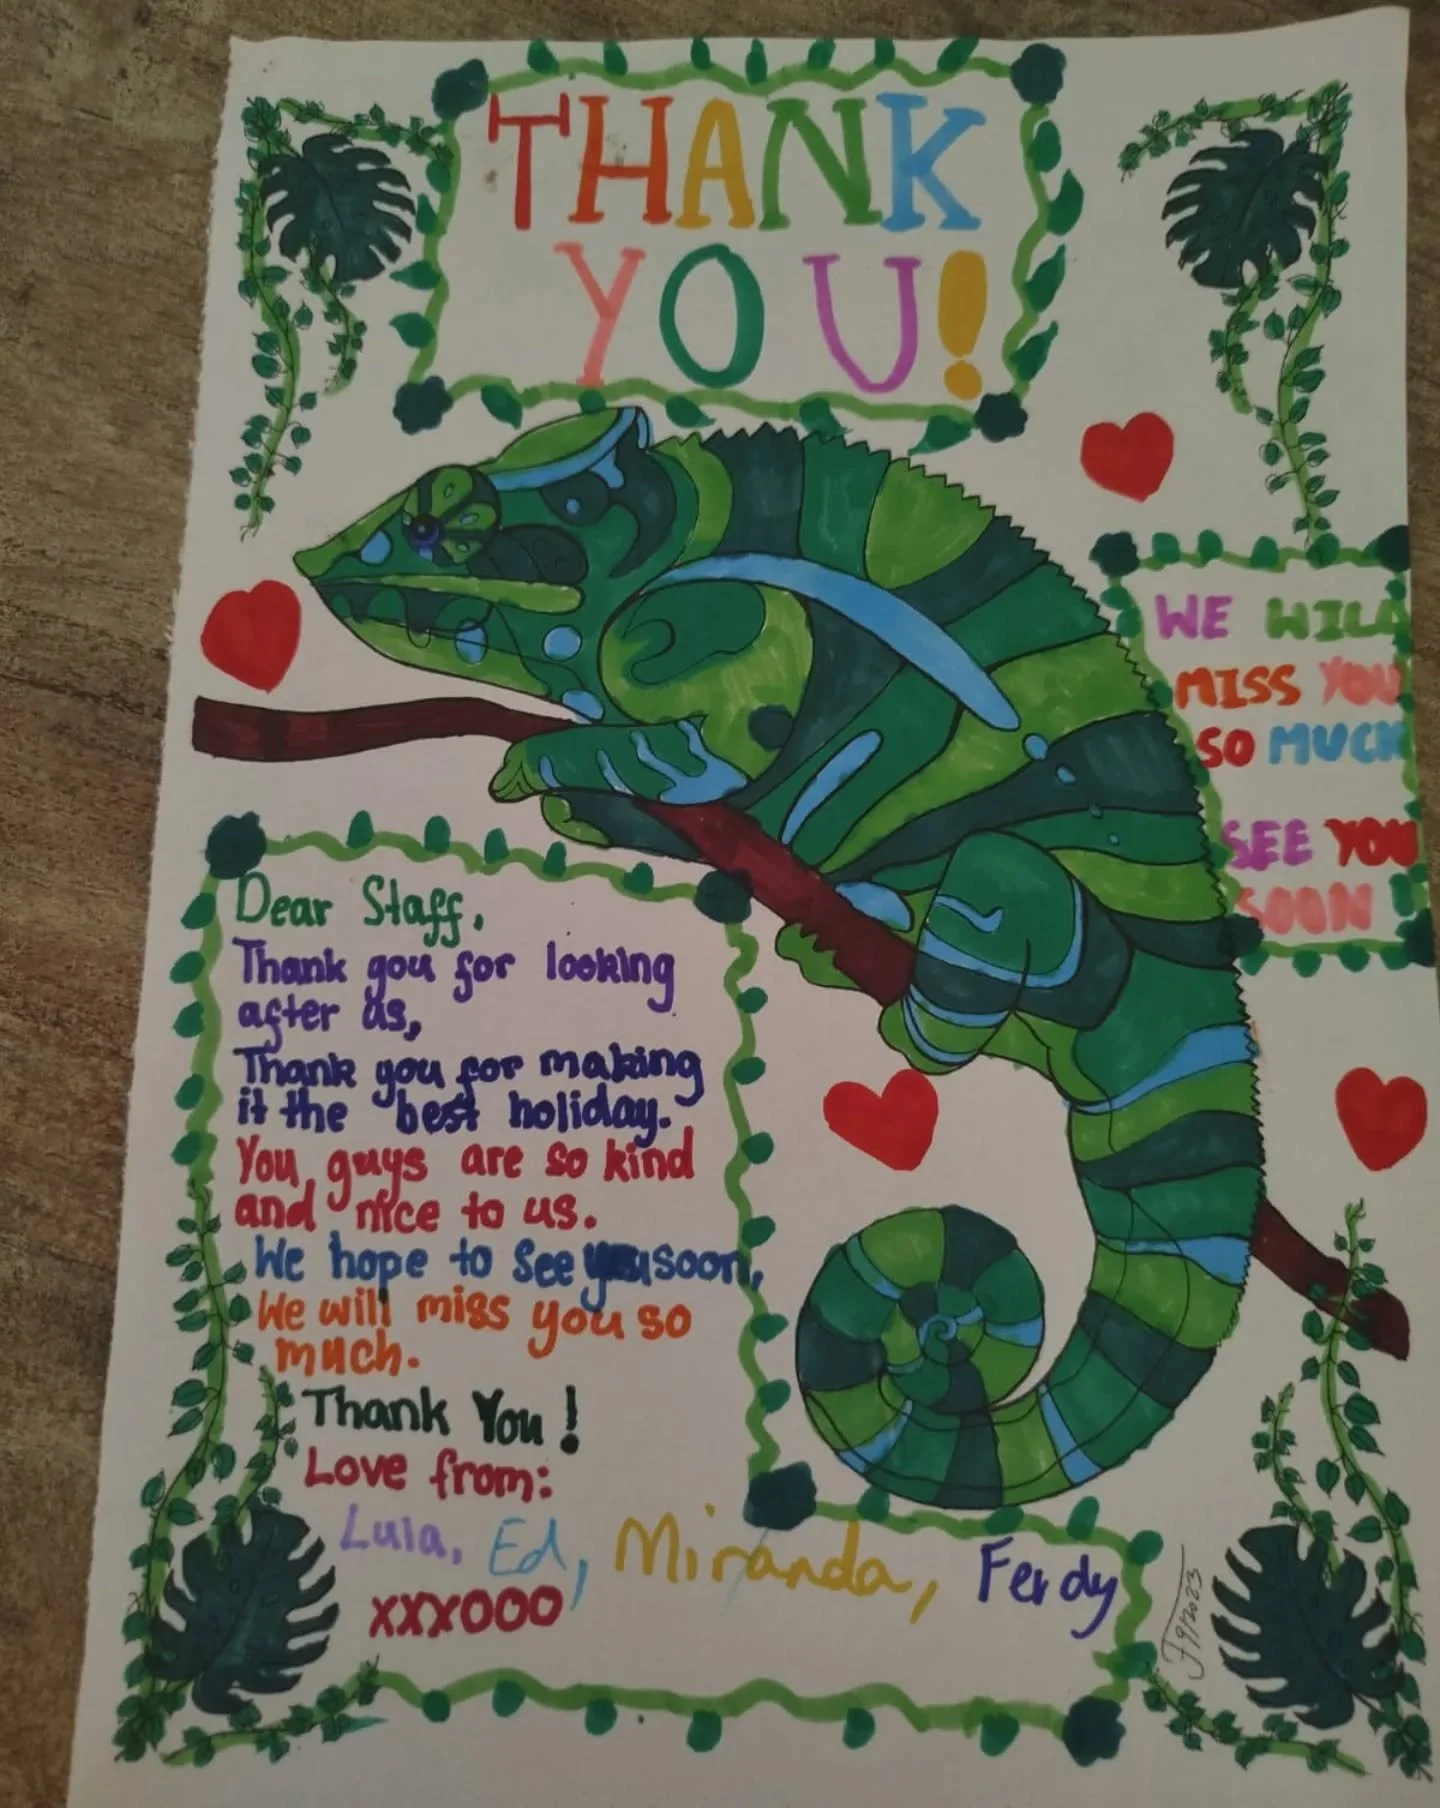 THANK
YOU!
WE WILL
MISS YOU
SO MUCH
SEE YOU
SOON!
Dear Staff,
Thank you for looking
after us,
Thank you for making
it the best holiday.
You guys are so kind
and nice to us.
We hope to see you soon,
We will miss you so
much.
Thank You!
Love from:
Lula, Ed, Miranda, Ferdy
xxxooo